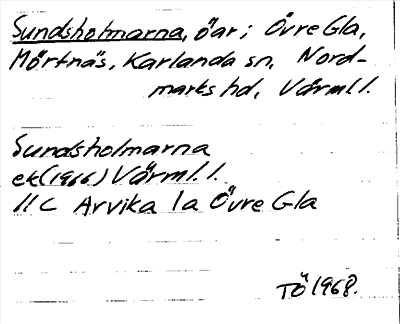 Sundsholmarna, öar i Övre Gla,
Mörtnäs, Karlanda sn, Nord-
marks hd, Värml. l.
Sundsholmarna
ek (1966) Värml. l.
11 C Arvika 1a Övre Gla
TÖ 1968.